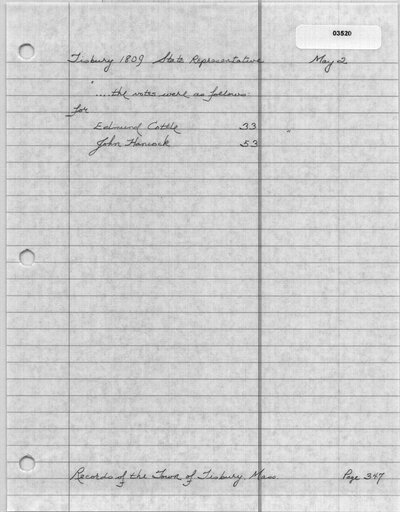 03520
Tisbury 1809 State Representative May 2
"....the votes were as follows
for
Edmund Cottle 33 "
John Hancock 53
Records of the Town of Tisbury, Mass. Page 347